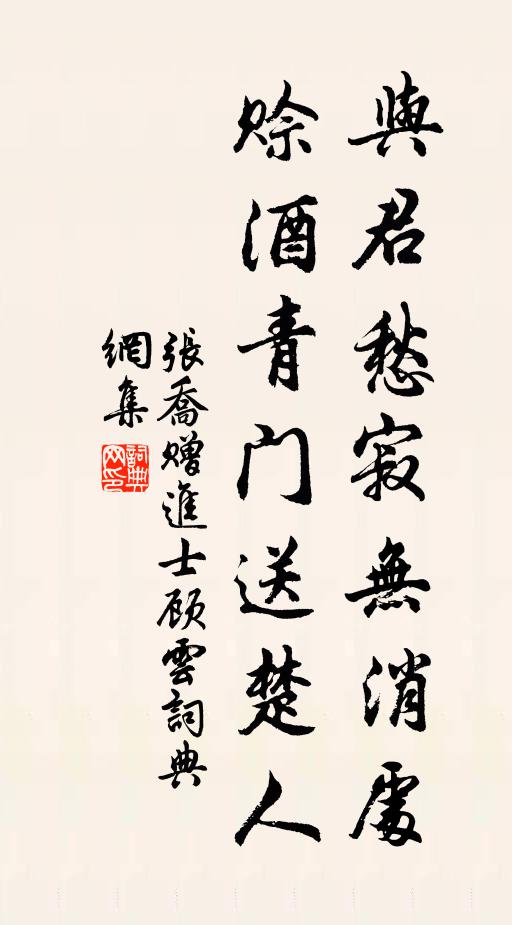 與君愁寂無消處
賒酒青门送楚人
張喬贈進士顾雲詞典
網集
詞典
网印